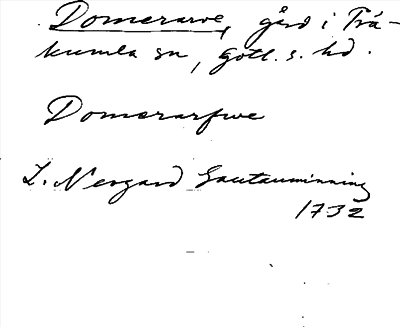 Domerarve, gård i Trä-
kumla sn, gotl. s. hd.
Domerarfwe
L. Nergard Gautauminning
1732